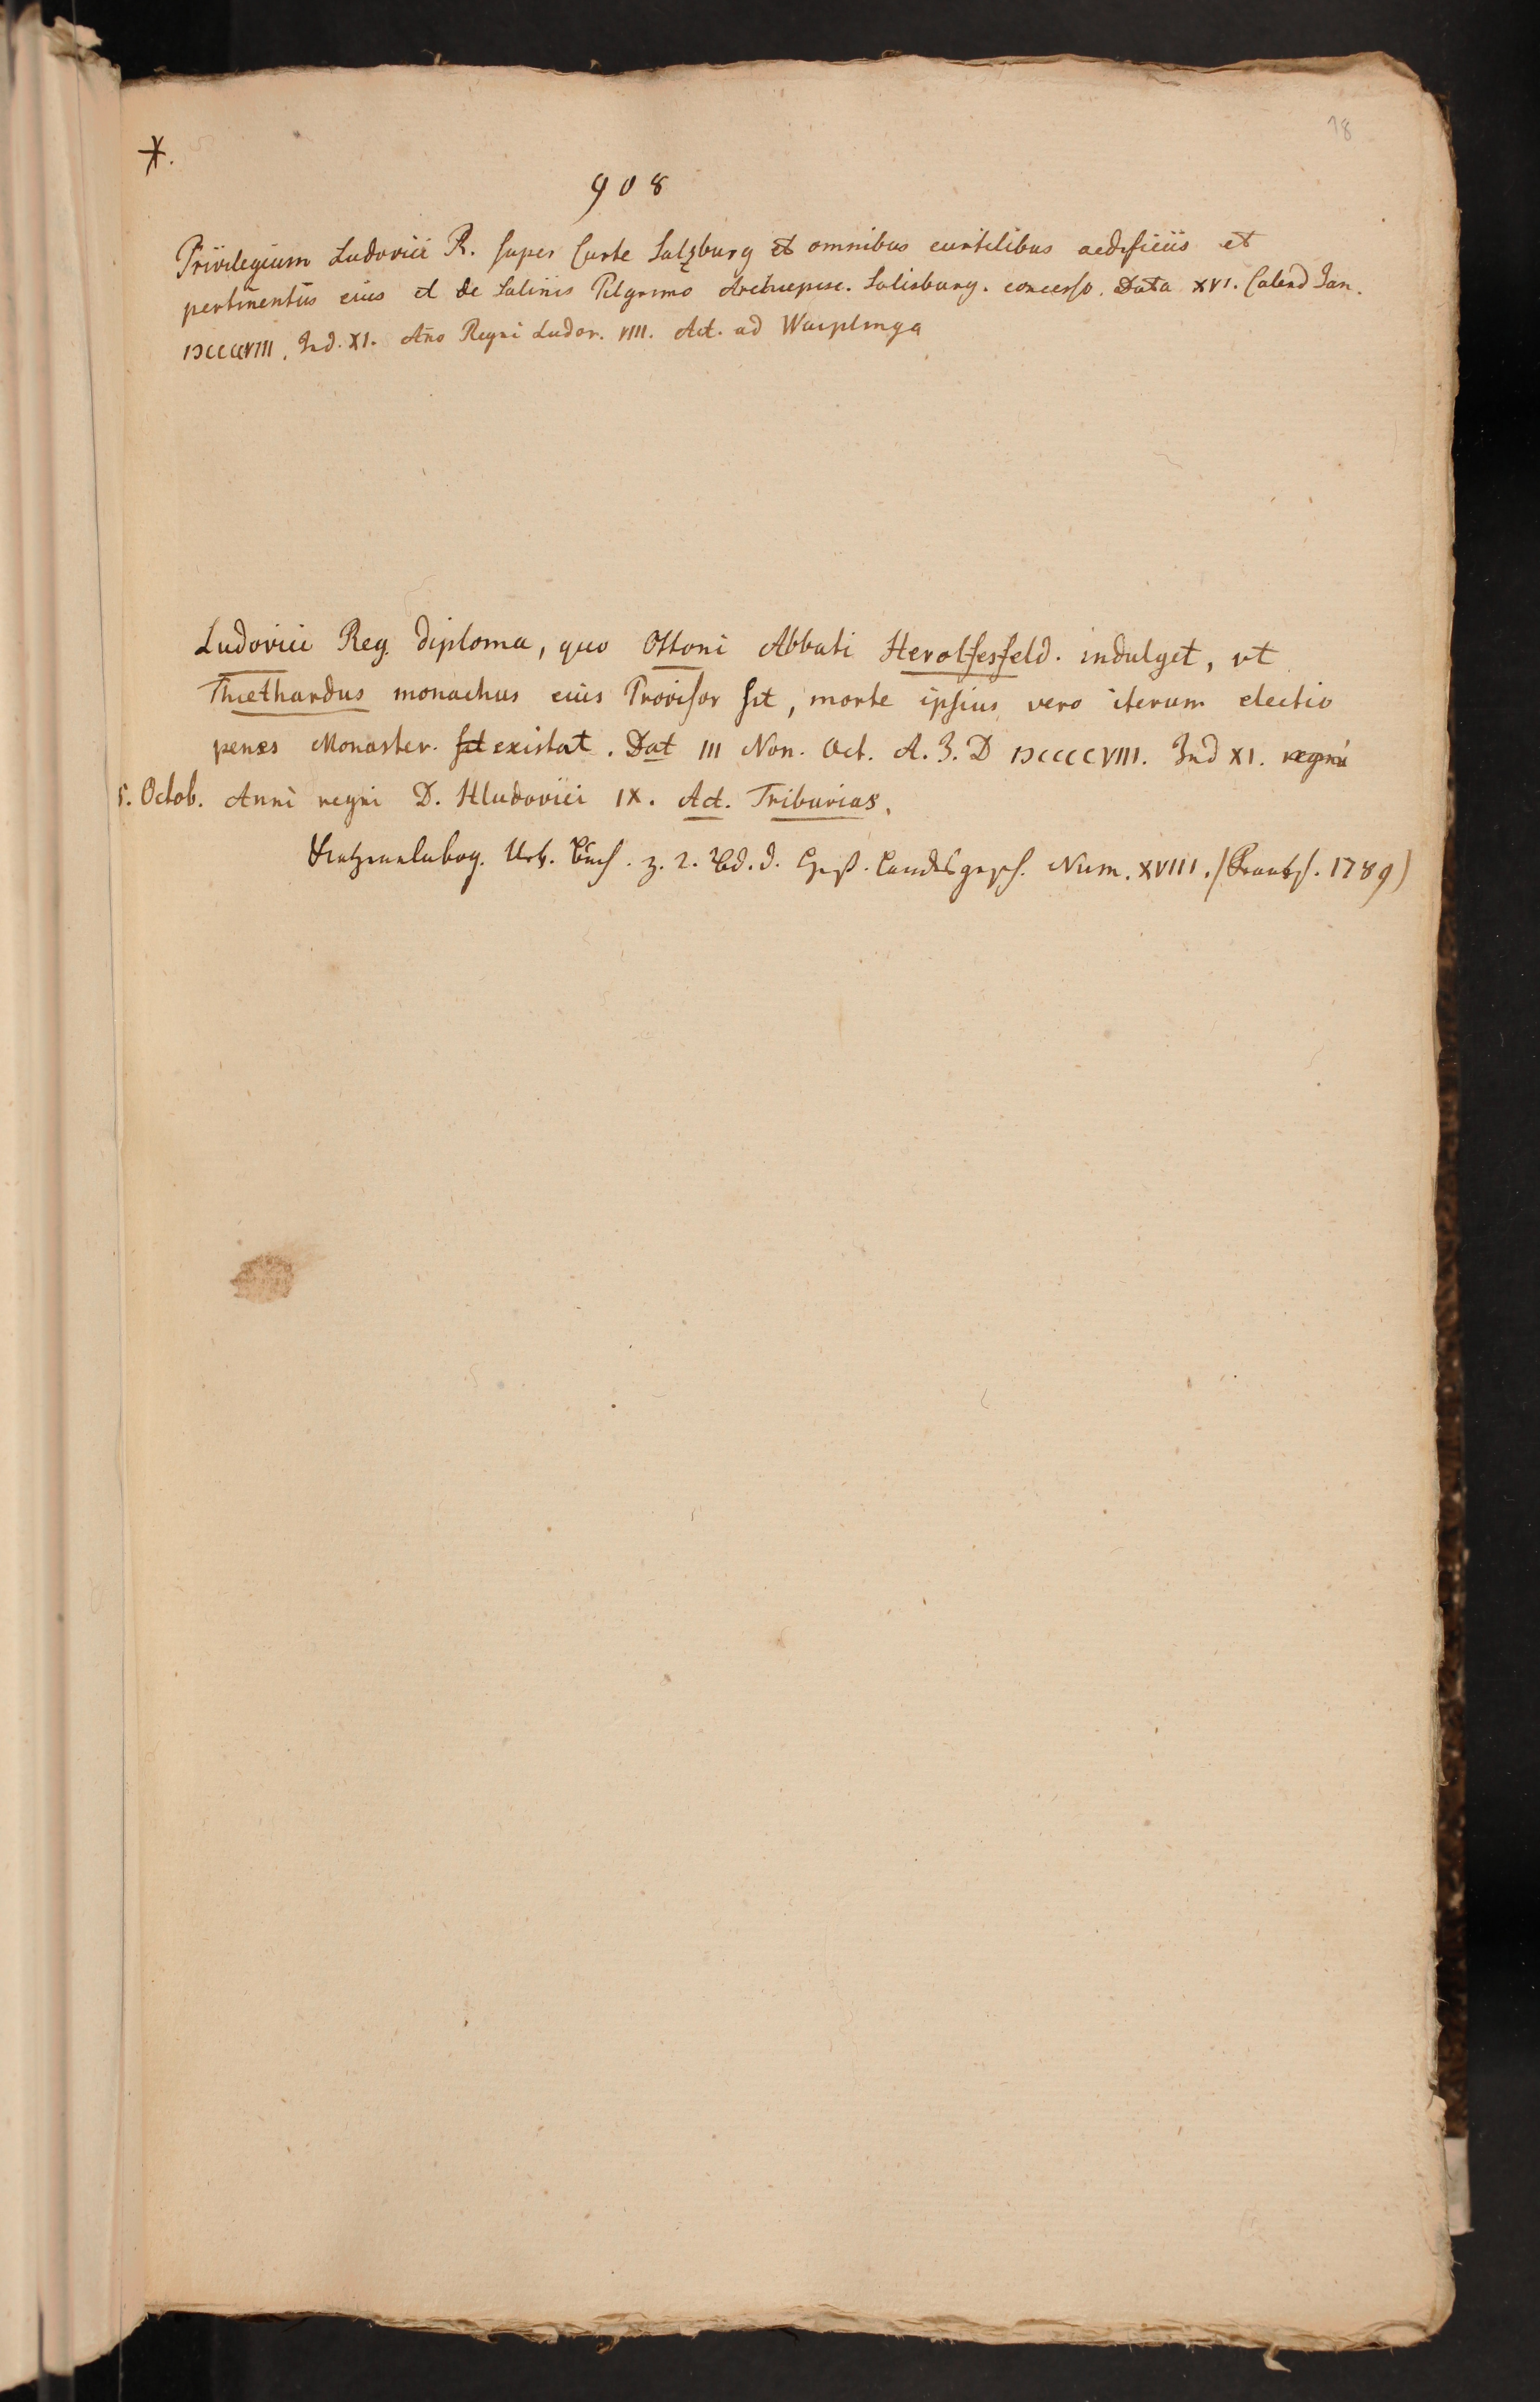 18
*.
908
Privilegium Ludovici R. super Curte Salzburg et omnibus curtilibus aedificiis et
pertinentiis eius et de Salinis Pilgrimo Archiepisc. Salisburg. concesso. Data XVI. Calend Jan.
DCCCCVIII. Ind. XI. Año Regni Ludov. VIII. Act. ad Waiplinga
Ludovici Reg. diploma, quo Ottoni Abbati Herolfesfeld. indulget, vt
Thiethardus monachus eius Provisor sit, morte ipsius vero iterum electio
penes Monaster. sit existat. Dat III Non. Oct. A. I. D DCCCCVIII. Ind XI. regni
5. Octob. Anni regni D. Hludovici IX. Act. Triburias.
Urk. z. 2. Bd. d. Heß. Landsgesch. Num. XVIII. (Frankf. 1789)